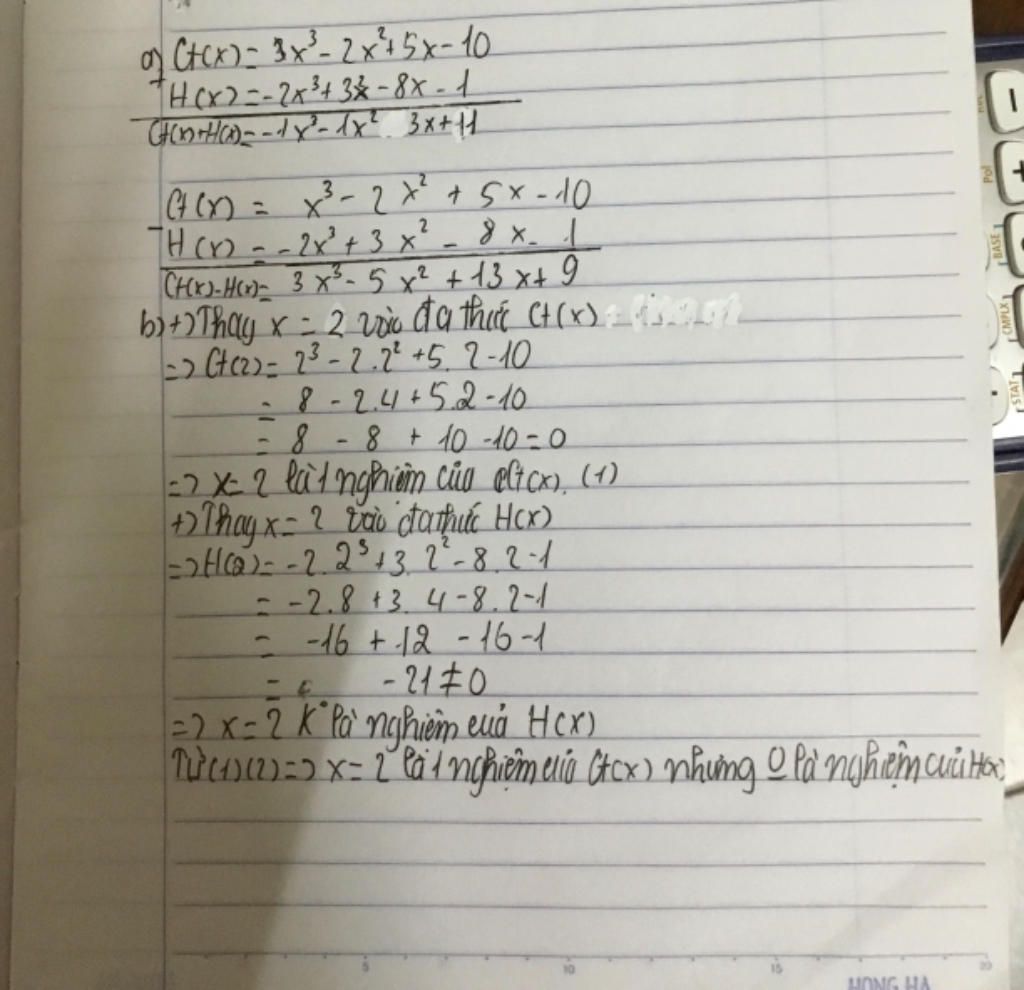 a) G(x) = 3x³ - 2x² + 5x - 10
+
H(x) = -2x³ + 3x² - 8x - 1
G(x)+H(x) = -1x³ - 1x² 3x + 11
G(x) = x³ - 2x² + 5x - 10
-
H(x) = -2x³ + 3x² - 8x - 1
G(x)-H(x) = 3x³ - 5x² + 13x + 9
b) +) Thay x = 2 vào đa thức G(x)
=> G(2) = 2³ - 2.2² + 5.2 - 10
= 8 - 2.4 + 5.2 - 10
= 8 - 8 + 10 - 10 = 0
=> x = 2 là 1 nghiệm của G(x). (1)
+) Thay x = 2 vào đa thức H(x)
=> H(2) = -2.2³ + 3.2² - 8.2 - 1
= -2.8 + 3.4 - 8.2 - 1
= -16 + 12 - 16 - 1
= -21 ≠ 0
=> x = 2 K° là nghiệm của H(x)
Từ (1) (2) => x = 2 là 1 nghiệm của G(x) nhưng O là nghiệm của H(x)
5 10 15 20
HONG HA
BASE
CMPLX
STAT
Pol